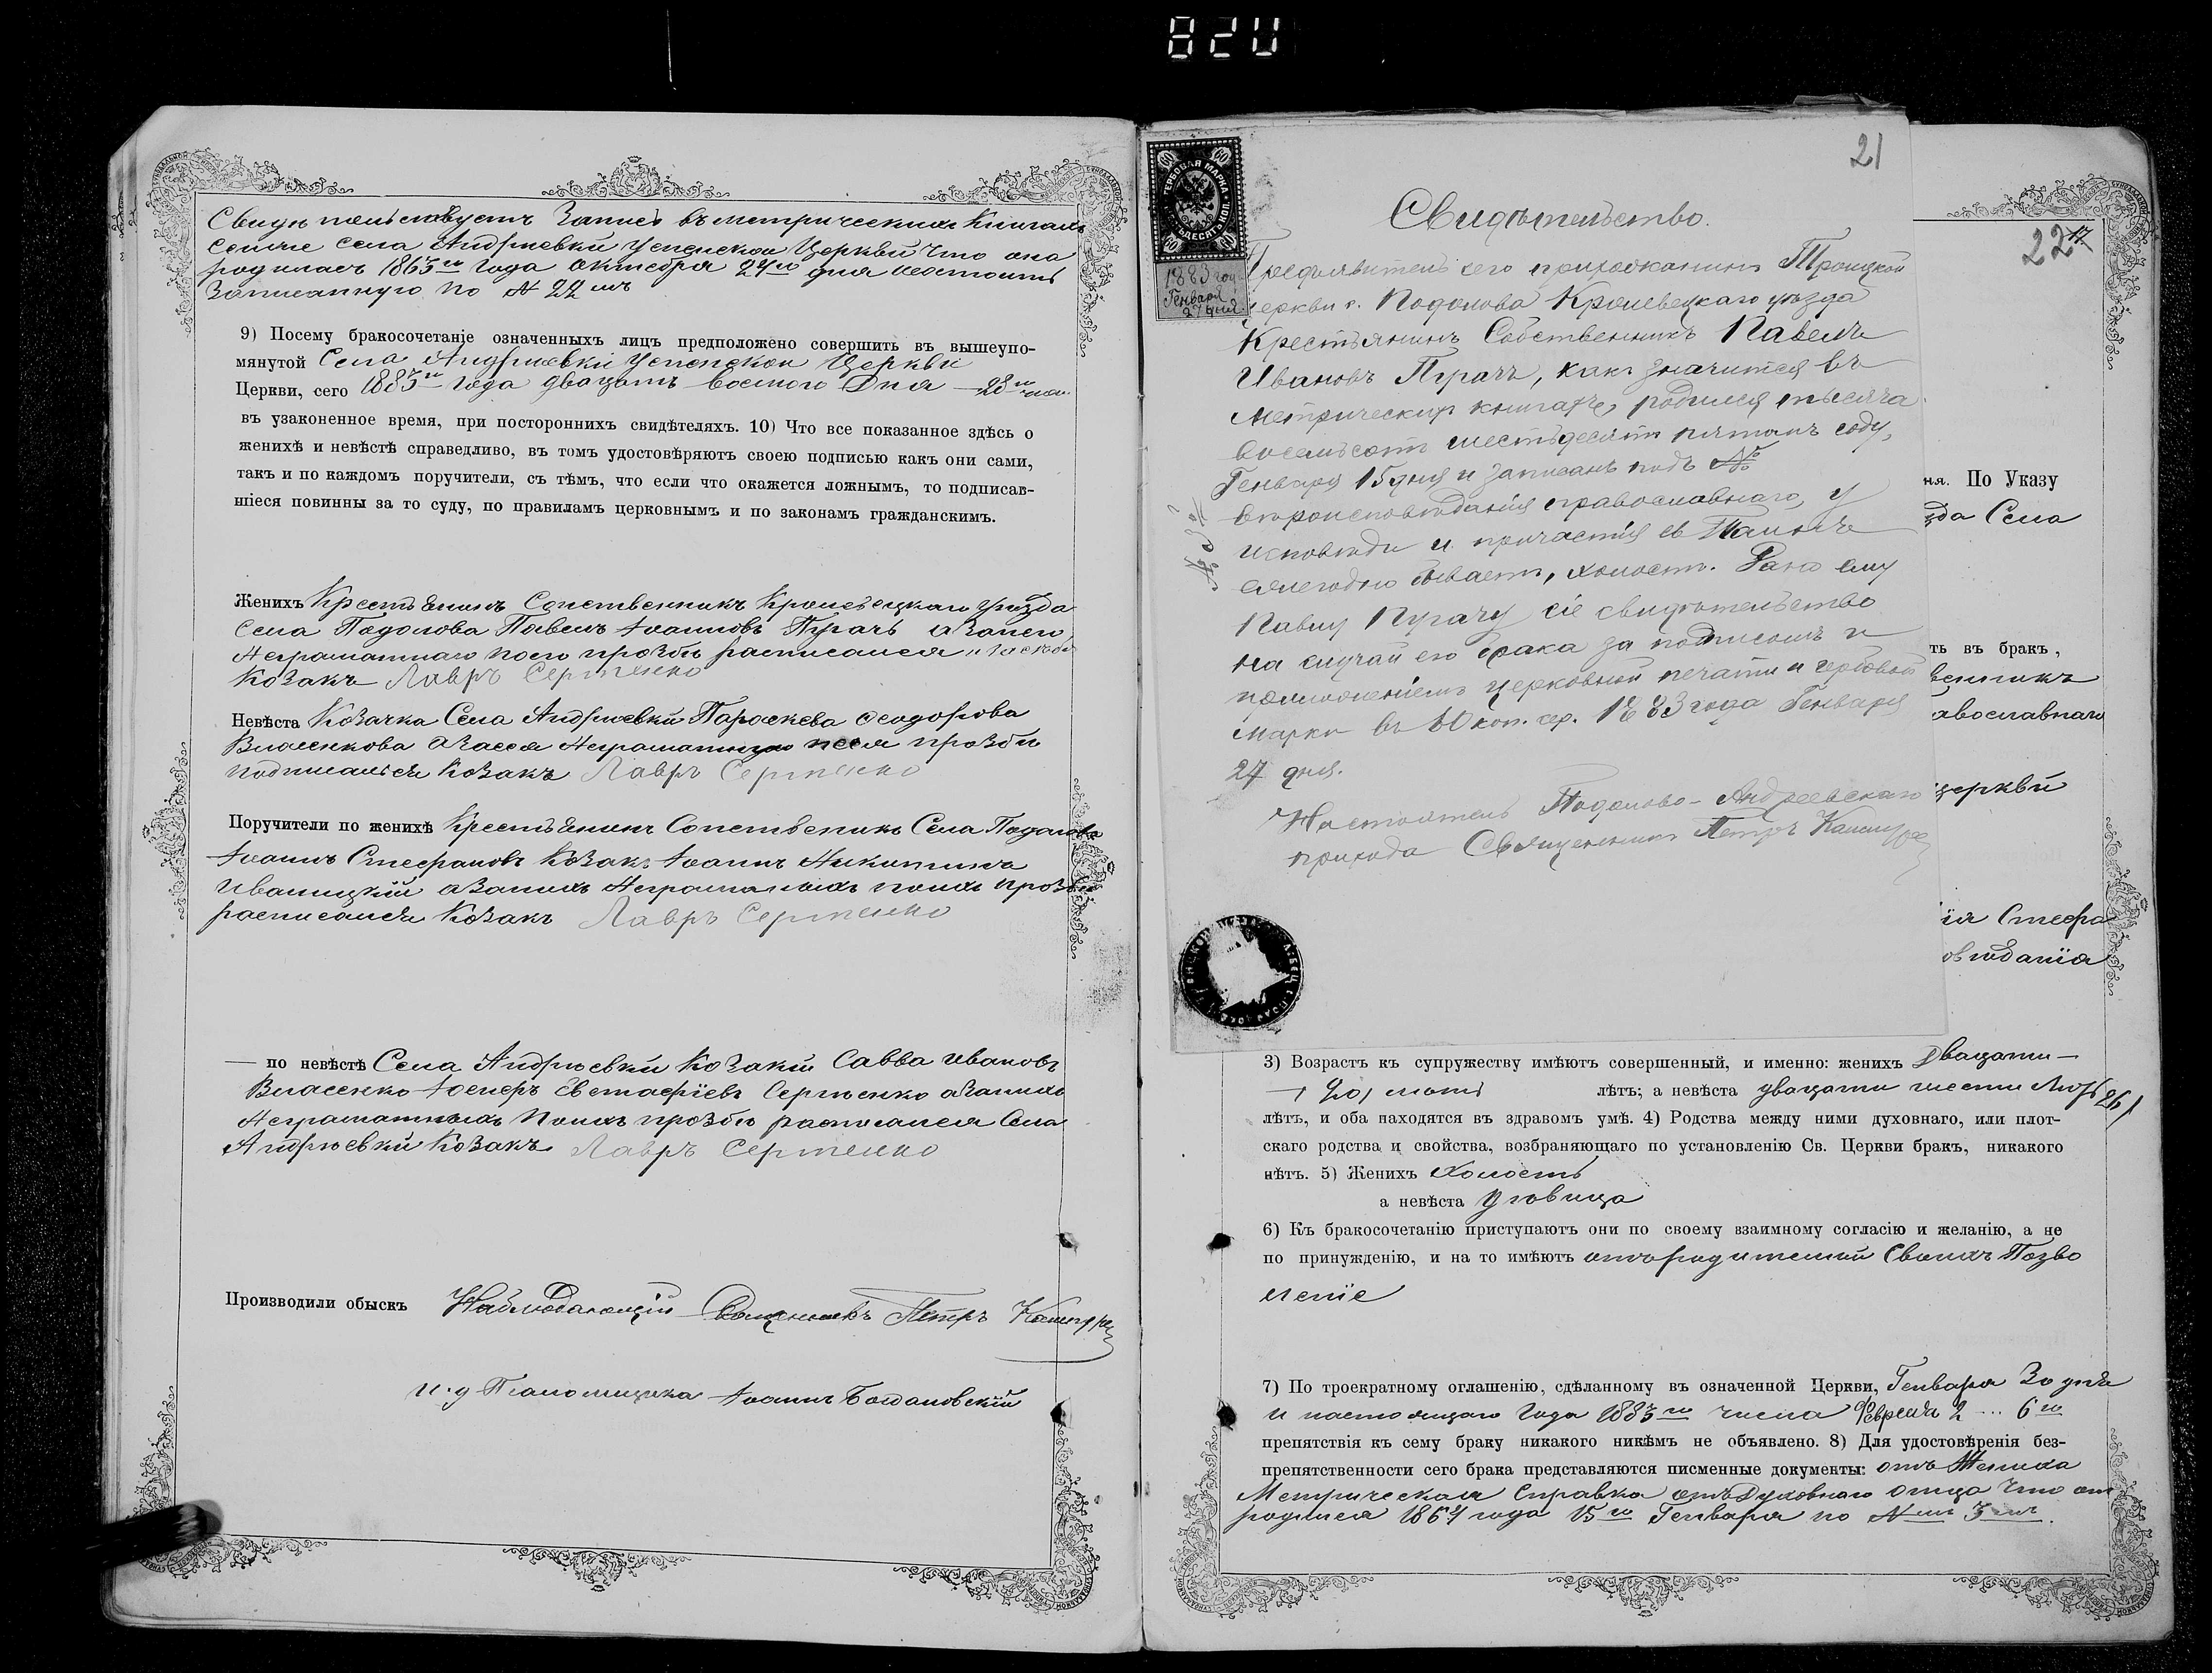 820
Свидѣтельствуетъ Запись въ метрическихъ Книгахъ
села Андріевки Успенской Церкви что она
родилась 1863го года октября 24го дня
Записанную по № 22мъ
9) Посему бракосочетаніе означенныхъ лицъ предположено совершить въ вышеупо-
мянутой Села Андріевки Успенской Церкви
Церкви, сего 1883го года двацать восмого Дня 28го
въ узаконенное время, при постороннихъ свидѣтеляхъ. 10) Что все показанное здѣсь о
женихѣ и невѣстѣ справедливо, въ томъ удостовѣряютъ своею подписью какъ они сами,
такъ и по каждомъ поручители, съ тѣмъ, что если что окажется ложнымъ, то подписав-
шіеся повинны за то суду, по правиламъ церковнымъ и по законамъ гражданскимъ.
Женихъ Крестьянинъ Сопственникъ Кролевецкаго уѣзда
Села Подолова Павелъ Іоанновъ Пугачъ
неграматнаго расписался
Козакъ Лавръ Сергѣенко
Невѣста Козачка Села Андріевки Параскева Ѳеодорова
Власенкова прозби
подписался Козакъ Лавръ Сергѣенко
Поручители по женихѣ Крестьянинъ Сопственикъ Села Подолова
Іоаннъ Стефановъ Козакъ Іоаннъ Никитинъ
Иваницкій азанихъ неграматныхъ поихъ прозби
расписался Козакъ Лавръ Сергѣенко
— по невѣстѣ Села Андрѣевки Козаки Савва Ивановъ
Власенко Евстафіевъ Сергѣенко азанихъ
неграматныхъ поихъ прозбѣ расписался Села
Андрѣевки Козакъ Лавръ Сергѣенко
Производили обыскъ Наблюдающій Священникъ Петръ
и.д Псаломщика Іоаннъ Богдановскій
21
ГЕРБОВАЯ МАРКА
60
1883 год.
Генваря
27 дня.
Свидѣтельство.
Предъявитель сего прихожанинъ Троицкой
церкви с. Подолова Кролевецкаго уѣзда
Крестьянинъ Собственникъ Павелъ
Ивановъ Пугачъ, какъ значится въ
метрическихъ книгахъ, родился тысяча
восемьсотъ шестьдесятъ пятомъ году,
Генваря 15 дня и записанъ подъ №
вѣроисповѣданія православнаго, у
исповѣди и причастія св Таинъ
ежегодно бываетъ, холостъ. Дано ему
Павлу Пугачу сіе свидѣтельство
на случай его брака за подписомъ и
приложеніемъ церковной печати и гербовой
марки въ 60 коп. сер. 1883 года Генваря
27 дня.
Настоятель Подолово-Андреевскаго
прихода Священникъ Петръ
№ 3й
22
17
ня. По Указу
зда Села
ть въ бракъ,
венникъ
авославнаго
церкви
ія Стефа
овѣданія
3) Возрастъ къ супружеству имѣютъ совершенный, и именно: женихъ двацати —
лѣтъ; а невѣста двацати шести 26
лѣтъ, и оба находятся въ здравомъ умѣ. 4) Родства между ними духовнаго, или плот-
скаго родства и свойства, возбраняющаго по установленію Св. Церкви бракъ, никакого
нѣтъ. 5) Женихъ Холостъ
а невѣста дѣвица
6) Къ бракосочетанію приступаютъ они по своему взаимному согласію и желанію, а не
по принужденію, и на то имѣютъ отъ родителей своихъ Позво
леніе
7) По троекратному оглашенію, сдѣланному въ означенной Церкви, Генваря 30 дня
и настоящаго Года 1883го числа февраля 2 ... 6го
препятствія къ сему браку никакого никѣмъ не объявлено. 8) Для удостовѣренія без-
препятственности сего брака представляются писменные документы: отъ Жениха
Метрическая Справка отъ духовнаго отца что он
родился 1864 года 15го Генваря по №мъ 3мъ.